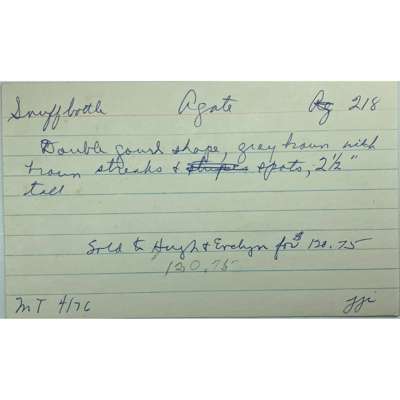 Snuff bottle Agate Ag 218
Double gourd shape, grey brown with
brown streaks & stripes spots, 2½"
tall
Sold to Hugh & Evelyn for $120.75
120.75
MT 4/76 jji